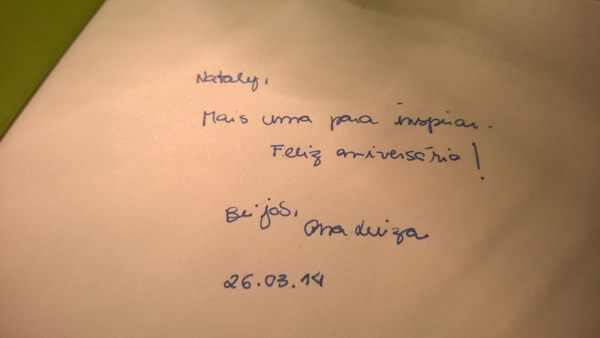 Nataly,
Mais uma para inspirar.
Feliz aniversário!
Beijos,
Ana Luiza
26.03.14